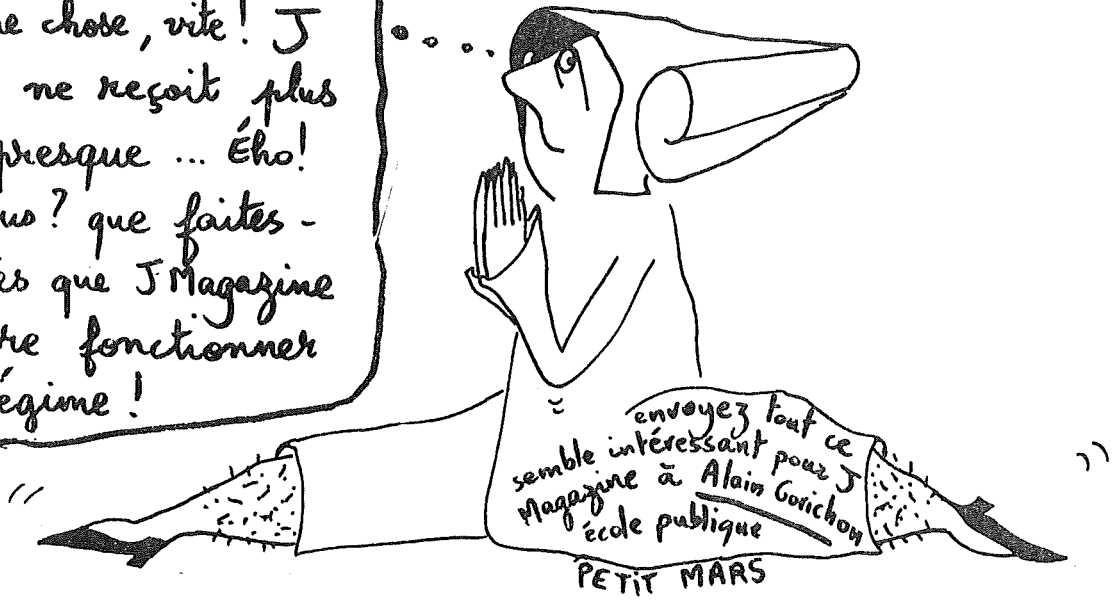 ne chose, vite! J
ne reçoit plus
presque ... Ého!
us? que faites-
es que J Magazine
re fonctionner
égime!
envoyez tout ce
semble intéressant pour J
Magazine à Alain Corichon
école publique
PETIT MARS